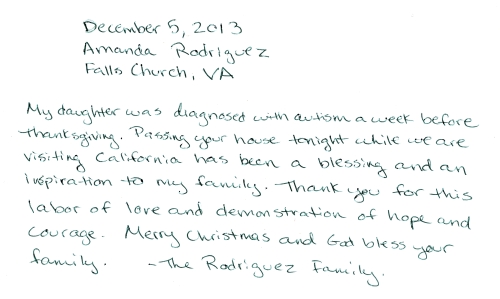 December 5, 2013
Amanda Rodriguez
Falls Church, VA
My daughter was diagnosed with autism a week before
Thanksgiving. Passing your house tonight while we are
visiting California has been a blessing and an
inspiration to my family. Thank you for this
labor of love and demonstration of hope and
courage. Merry Christmas and God bless your
family. - The Rodriguez Family.